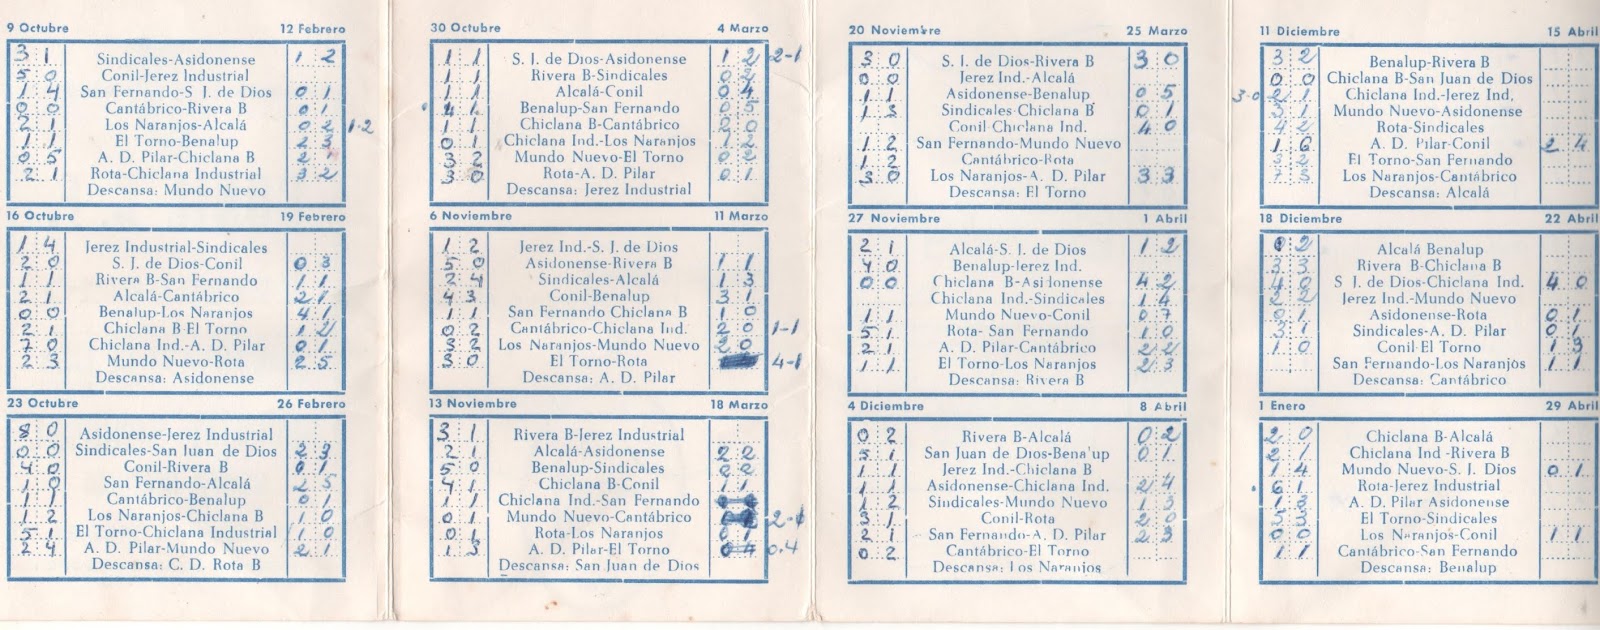 9 Octubre 12 Febrero
3 1 Sindicales-Asidonense 1 2
5 0 Conil-Jerez Industrial
1 4 San Fernando-S J. de Dios 0 1
0 0 Cantábrico-Rivera B 0 1
2 1 Los Naranjos-Alcalá 0 2 1-2
1 1 El Torno-Benalup 2 3
0 5 A. D. Pilar-Chiclana B 2
2 1 Rota-Chiclana Industrial 3 2
Descansa: Mundo Nuevo
16 Octubre 19 Febrero
1 4 Jerez Industrial-Sindicales
2 0 S. J. de Dios-Conil 0 3
1 1 Rivera B-San Fernando 1 1
2 1 Alcalá-Cantábrico 2 1
0 0 Benalup-Los Naranjos 4 1
2 1 Chiclana B-El Torno 1 2
7 0 Chiclana Ind.-A. D. Pilar 0 1
2 3 Mundo Nuevo-Rota 2 5
Descansa: Asidonense
23 Octubre 26 Febrero
8 0 Asidonense-Jerez Industrial
0 0 Sindicales-San Juan de Dios 2 3
4 0 Conil-Rivera B 0 1
1 0 San Fernando-Alcalá 2 5
1 1 Cantábrico-Benalup 0 1
1 2 Los Naranjos-Chiclana B 1 0
5 1 El Torno-Chiclana Industrial 1 0
2 4 A. D. Pilar-Mundo Nuevo 2 1
Descansa: C. D. Rota B
30 Octubre 4 Marzo
1 1 S. J. de Dios-Asidonense 1 2 2-1
1 1 Rivera B-Sindicales 0 2
1 1 Alcalá-Conil 0 4
4 1 Benalup-San Fernando 0 5
1 1 Chiclana B-Cantábrico 2 0
0 1 Chiclana Ind.-Los Naranjos 1 2
3 2 Mundo Nuevo-El Torno 0 2
3 0 Rota-A. D. Pilar 0 1
Descansa: Jerez Industrial
6 Noviembre 11 Marzo
1 2 Jerez Ind.-S. J. de Dios
5 0 Asidonense-Rivera B 1 1
2 4 Sindicales-Alcalá 1 3
4 3 Conil-Benalup 3 1
1 1 San Fernando Chiclana B 1 0
0 2 Cantábrico-Chiclana Ind. 2 0 1-1
3 2 Los Naranjos-Mundo Nuevo 2 0
3 0 El Torno-Rota 4-1
Descansa: A. D. Pilar
13 Noviembre 18 Marzo
3 1 Rivera B-Jerez Industrial
2 1 Alcalá-Asidonense 2 2
5 0 Benalup-Sindicales 0 2
4 1 Chiclana B-Conil 1 1
1 1 Chiclana Ind.-San Fernando
0 1 Mundo Nuevo-Cantábrico 2-1
0 1 Rota-Los Naranjos 0 1
1 3 A. D. Pilar-El Torno 0 4 0.4
Descansa: San Juan de Dios
20 Noviembre 25 Marzo
3 0 S. J. de Dios-Rivera B 3 0
0 0 Jerez Ind.-Alcalá
1 1 Asidonense-Benalup 0 5
1 3 Sindicales-Chiclana B 0 1
Conil-Chiclana Ind. 4 0
1 2 San Fernando-Mundo Nuevo
1 2 Cantábrico-Rota
3 0 Los Naranjos-A. D. Pilar 3 3
Descansa: El Torno
27 Noviembre 1 Abril
2 1 Alcalá-S. J. de Dios 1 2
4 0 Benalup-Jerez Ind.
0 0 Chiclana B-Asidonense 4 2
Chiclana Ind.-Sindicales 1 4
1 1 Mundo Nuevo-Conil 0 7
5 1 Rota- San Fernando 1 0
2 1 A. D. Pilar-Cantábrico 2 2
1 1 El Torno-Los Naranjos 2 3
Descansa: Rivera B
4 Diciembre 8 Abril
0 2 Rivera B-Alcalá 0 2
5 1 San Juan de Dios-Bena'up 0 1
1 1 Jerez Ind.-Chiclana B
1 1 Asidonense-Chiclana Ind. 2 4
1 2 Sindicales-Mundo Nuevo 1 3
3 1 Conil-Rota 2 0
2 1 San Fernando-A. D. Pilar 2 3
0 2 Cantábrico-El Torno
Descansa: Los Naranjos
11 Diciembre 15 Abril
3 2 Benalup-Rivera B
0 0 Chiclana B-San Juan de Dios
3-0 2 1 Chiclana Ind.-Jerez Ind.
3 1 Mundo Nuevo-Asidonense
4 2 Rota-Sindicales
1 6 A. D. Pilar-Conil 2 4
3 2 El Torno-San Fernando
7 3 Los Naranjos-Cantábrico
Descansa: Alcalá
18 Diciembre 22 Abril
2 Alcalá Benalup
3 3 Rivera B-Chiclana B
4 0 S. J de Dios-Chiclana Ind. 4 0
2 2 Jerez Ind.-Mundo Nuevo
0 1 Asidonense-Rota 0 1
3 1 Sindicales-A. D. Pilar 0 1
1 0 Conil-El Torno 1 3
San Fernando-Los Naranjos 1 1
Descansa: Cantábrico
1 Enero 29 Abril
2 0 Chiclana B-Alcalá
2 1 Chiclana Ind -Rivera B
1 4 Mundo Nuevo-S. J. Dios 0 1
6 1 Rota-Jerez Industrial
1 3 A. D. Pilar Asidonense
3 3 El Torno-Sindicales
0 0 Los Naranjos-Conil 1 1
1 1 Cantábrico-San Fernando
Descansa: Benalup